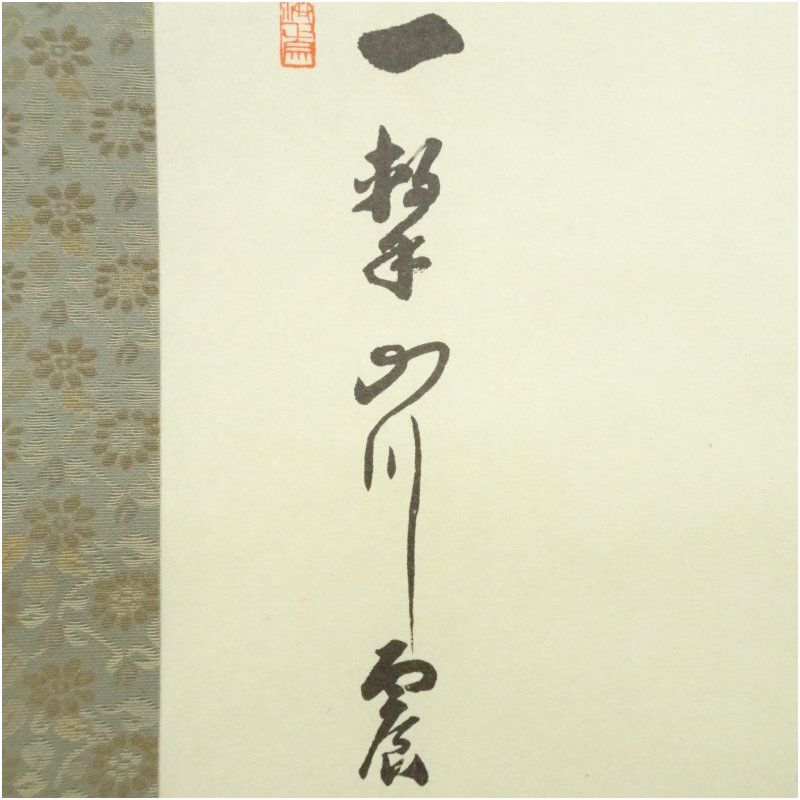 一撃山川震